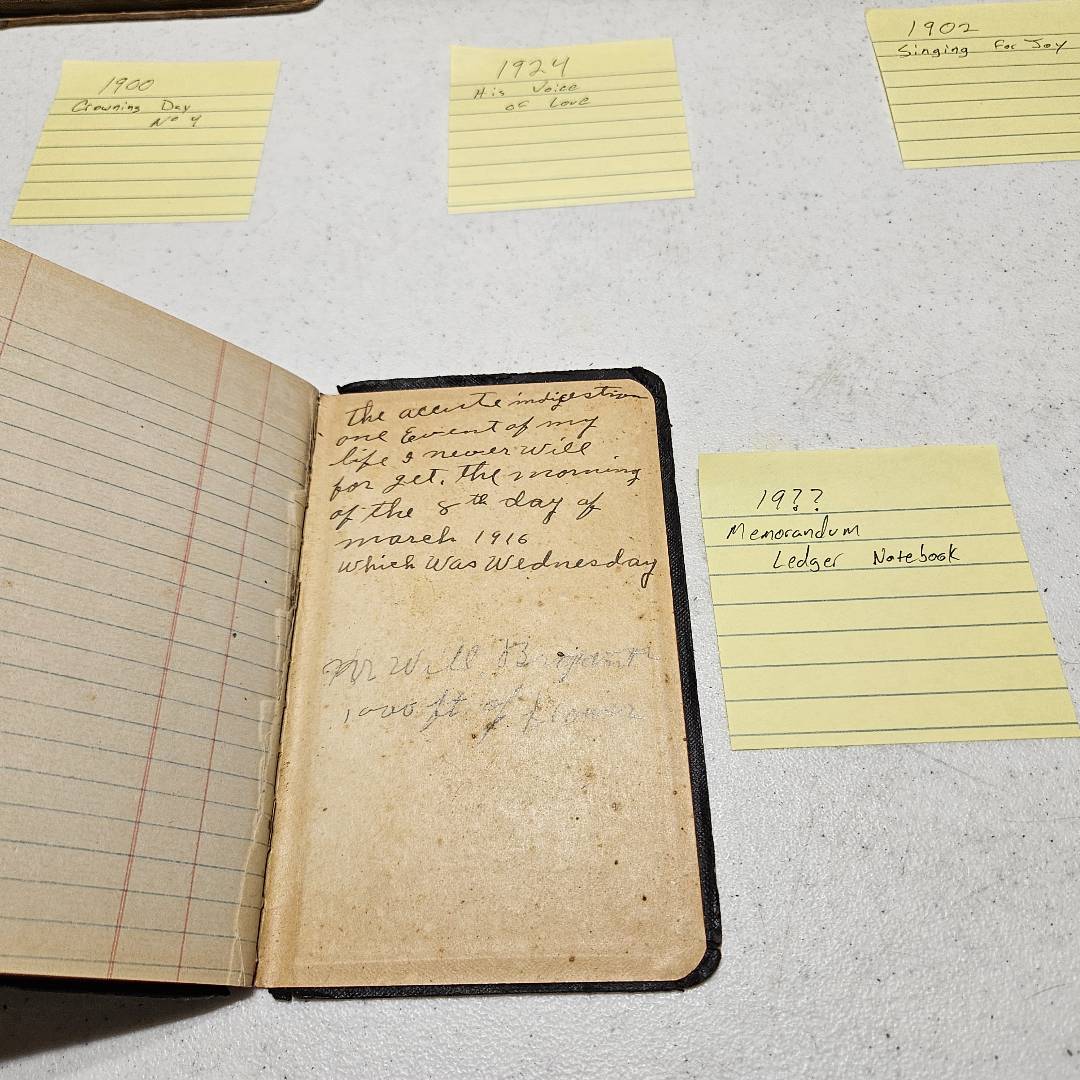 1900
Crowning Day
No 4
1924
His Voice
of Love
1902
Singing For Joy
the accute indigestion
one Event of my
life I never will
for get. the morning
of the 8th day of
march 1916
which Was Wednesday
Mr Will
1000 ft of
19??
Memorandum
Ledger Notebook